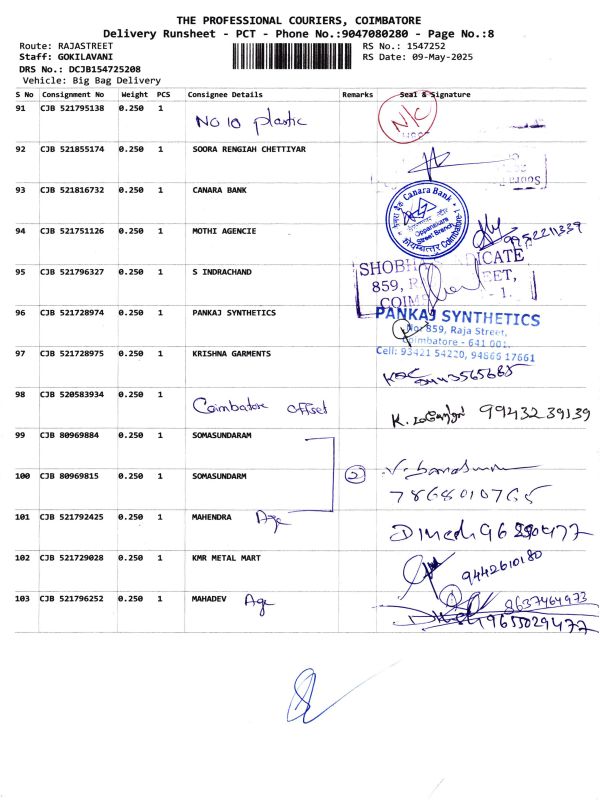 THE PROFESSIONAL COURIERS, COIMBATORE
Delivery Runsheet - PCT - Phone No.:9047080280 - Page No.:8
Route: RAJASTREET
RS No.: 1547252
Staff: GOKILAVANI
RS Date: 09-May-2025
DRS No.: DCJB154725208
Vehicle: Big Bag Delivery
S No Consignment No Weight PCS Consignee Details Remarks Seal & Signature
91 CJB 521795138 0.250 1 No 10 plastic N/C
92 CJB 521855174 0.250 1 SOORA RENGIAH CHETTIYAR
93 CJB 521816732 0.250 1 CANARA BANK Canara Bank
Oppanakara
Street Branch
94 CJB 521751126 0.250 1 MOTHI AGENCIE 9952211339
95 CJB 521796327 0.250 1 S INDRACHAND
859,
96 CJB 521728974 0.250 1 PANKAJ SYNTHETICS PANKAJ SYNTHETICS
No: 859, Raja Street,
Coimbatore - 641 001.
Cell: 93421 54220, 94866 17661
97 CJB 521728975 0.250 1 KRISHNA GARMENTS
98 CJB 520583934 0.250 1 Coimbatore offset 9943239139
99 CJB 80969884 0.250 1 SOMASUNDARAM
100 CJB 80969815 0.250 1 SOMASUNDARM 2
7868010765
101 CJB 521792425 0.250 1 MAHENDRA Age
102 CJB 521729028 0.250 1 KMR METAL MART 9442610180
103 CJB 521796252 0.250 1 MAHADEV Age 8637464973
9655029477